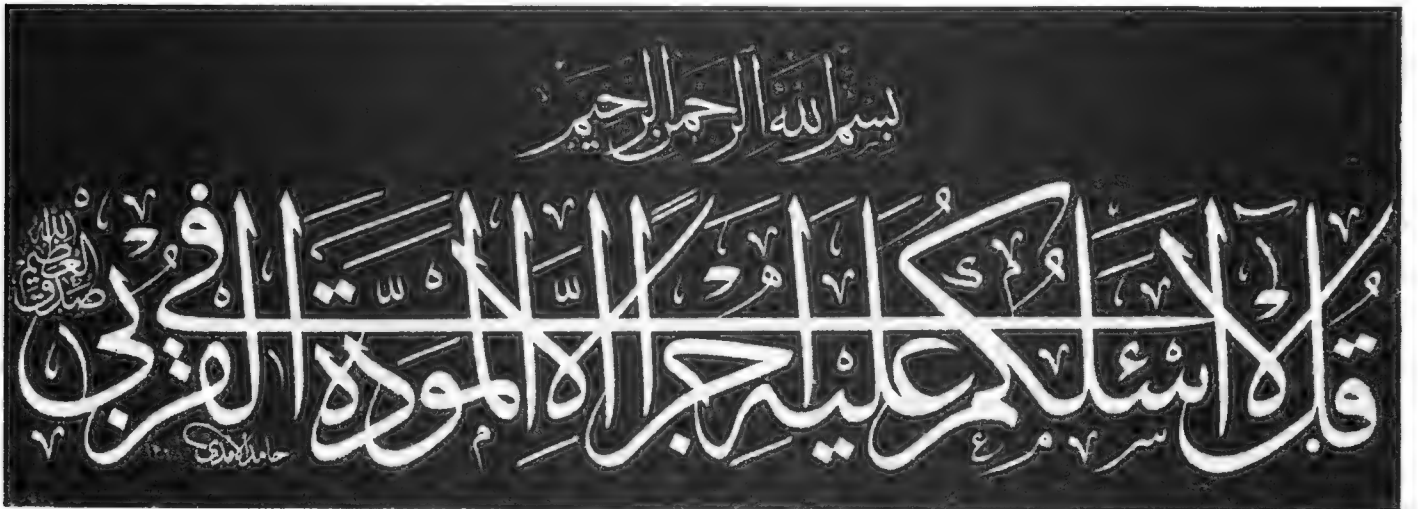 بسم الله الرحمن الرحيم
قل لا اسئلكم عليه اجرا الا المودة في القربى
صدق الله العظيم
حامد الآمدي